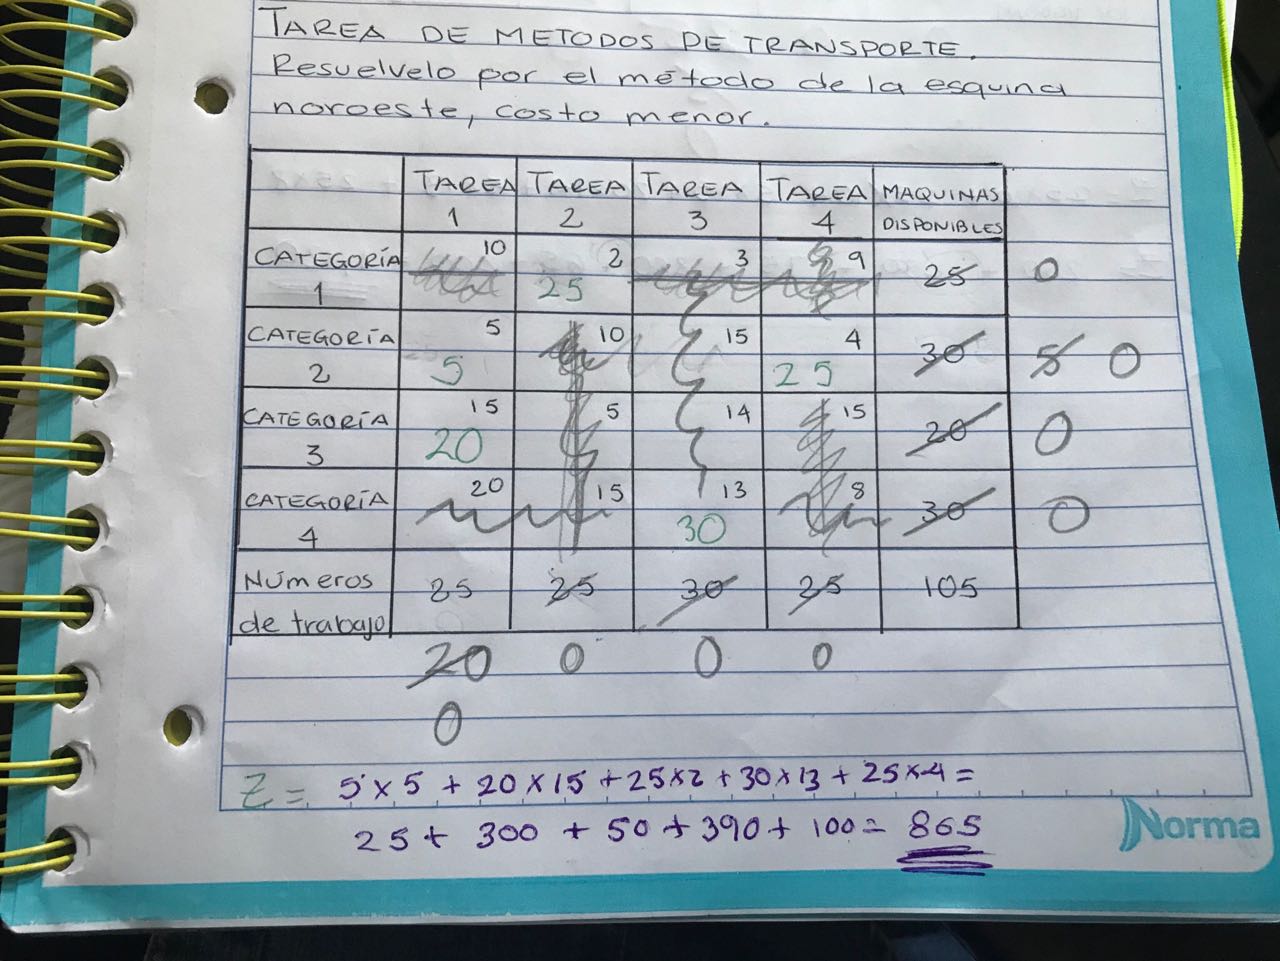 TAREA DE METODOS DE TRANSPORTE.
Resuelvelo por el método de la esquina
noroeste, costo menor.
TAREA 1 TAREA 2 TAREA 3 TAREA 4 MAQUINAS DISPONIBLES
CATEGORÍA 1 10 2 25 3 9 25 0
CATEGORÍA 2 5 5 10 15 4 25 30 5 0
CATEGORÍA 3 15 20 5 14 15 20 0
CATEGORÍA 4 20 15 13 30 8 30 0
Números de trabajo 25 25 30 25 105
20 0 0 0
0
Z = 5x5 + 20x15 + 25x2 + 30x13 + 25x4 =
25 + 300 + 50 + 390 + 100 = 865
Norma